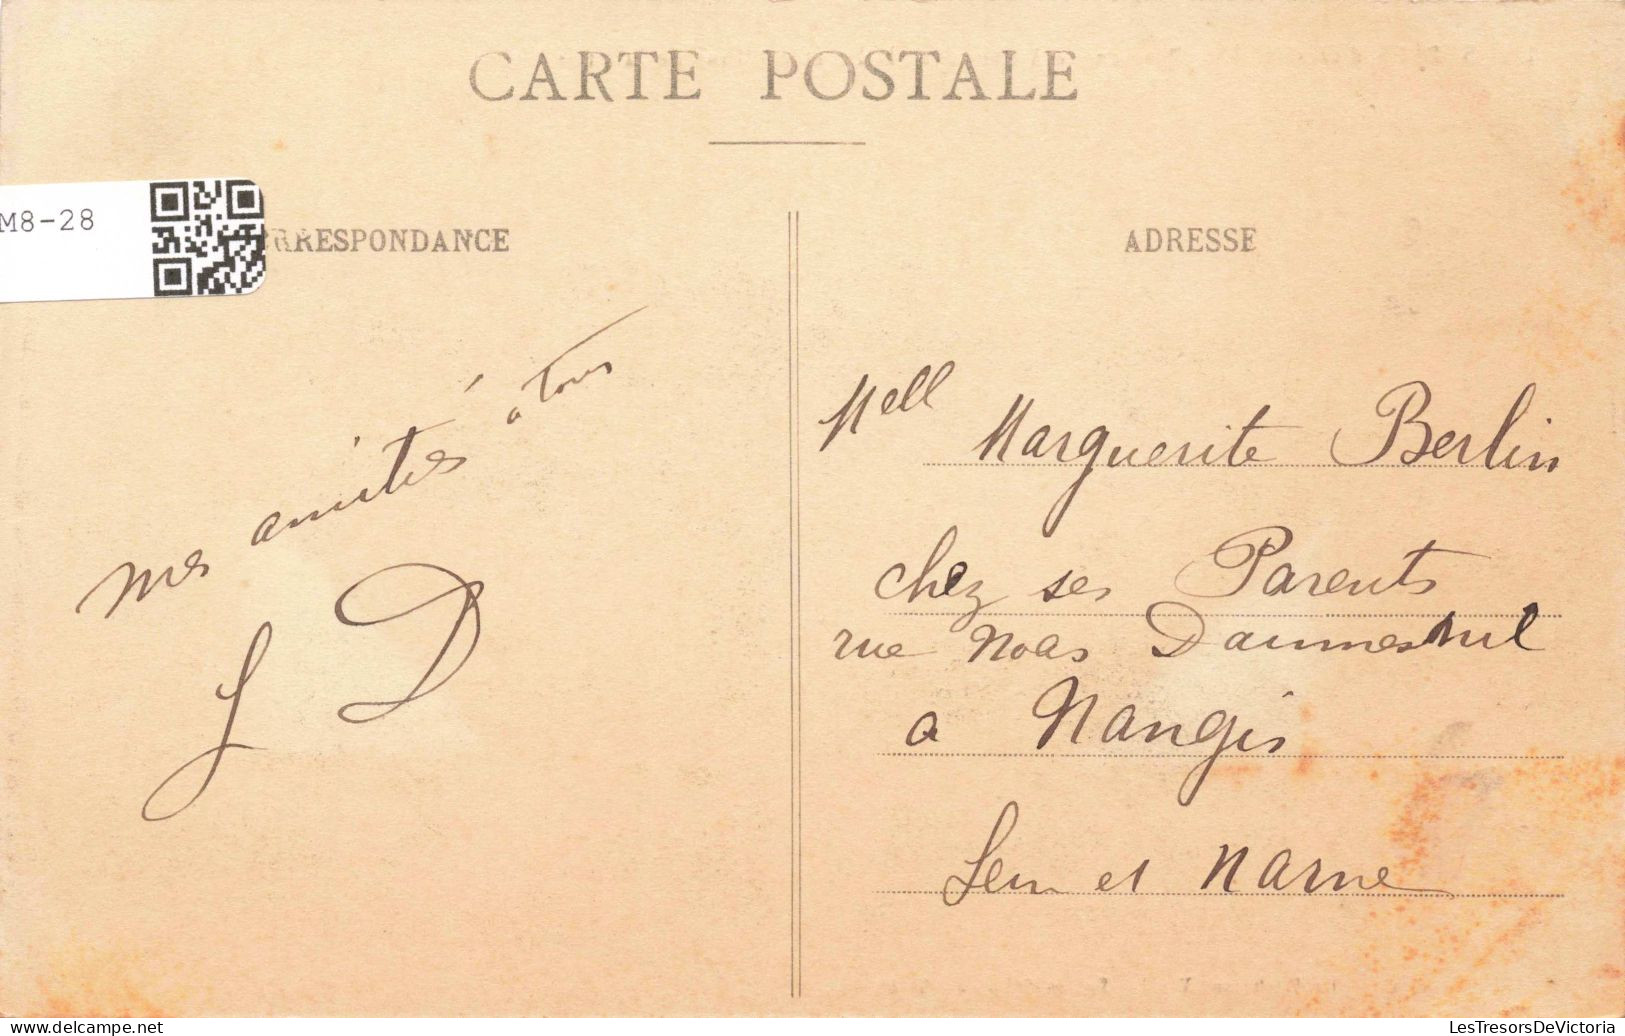 CARTE POSTALE
M8-28
RRESPONDANCE
ADRESSE
mes amitiés a tous
D
Mell Marguerite Berlin
chez ses Parents
rue Noas Daumesnil
a Nangis
Sein et Marne
LesTresorsDeVictoria